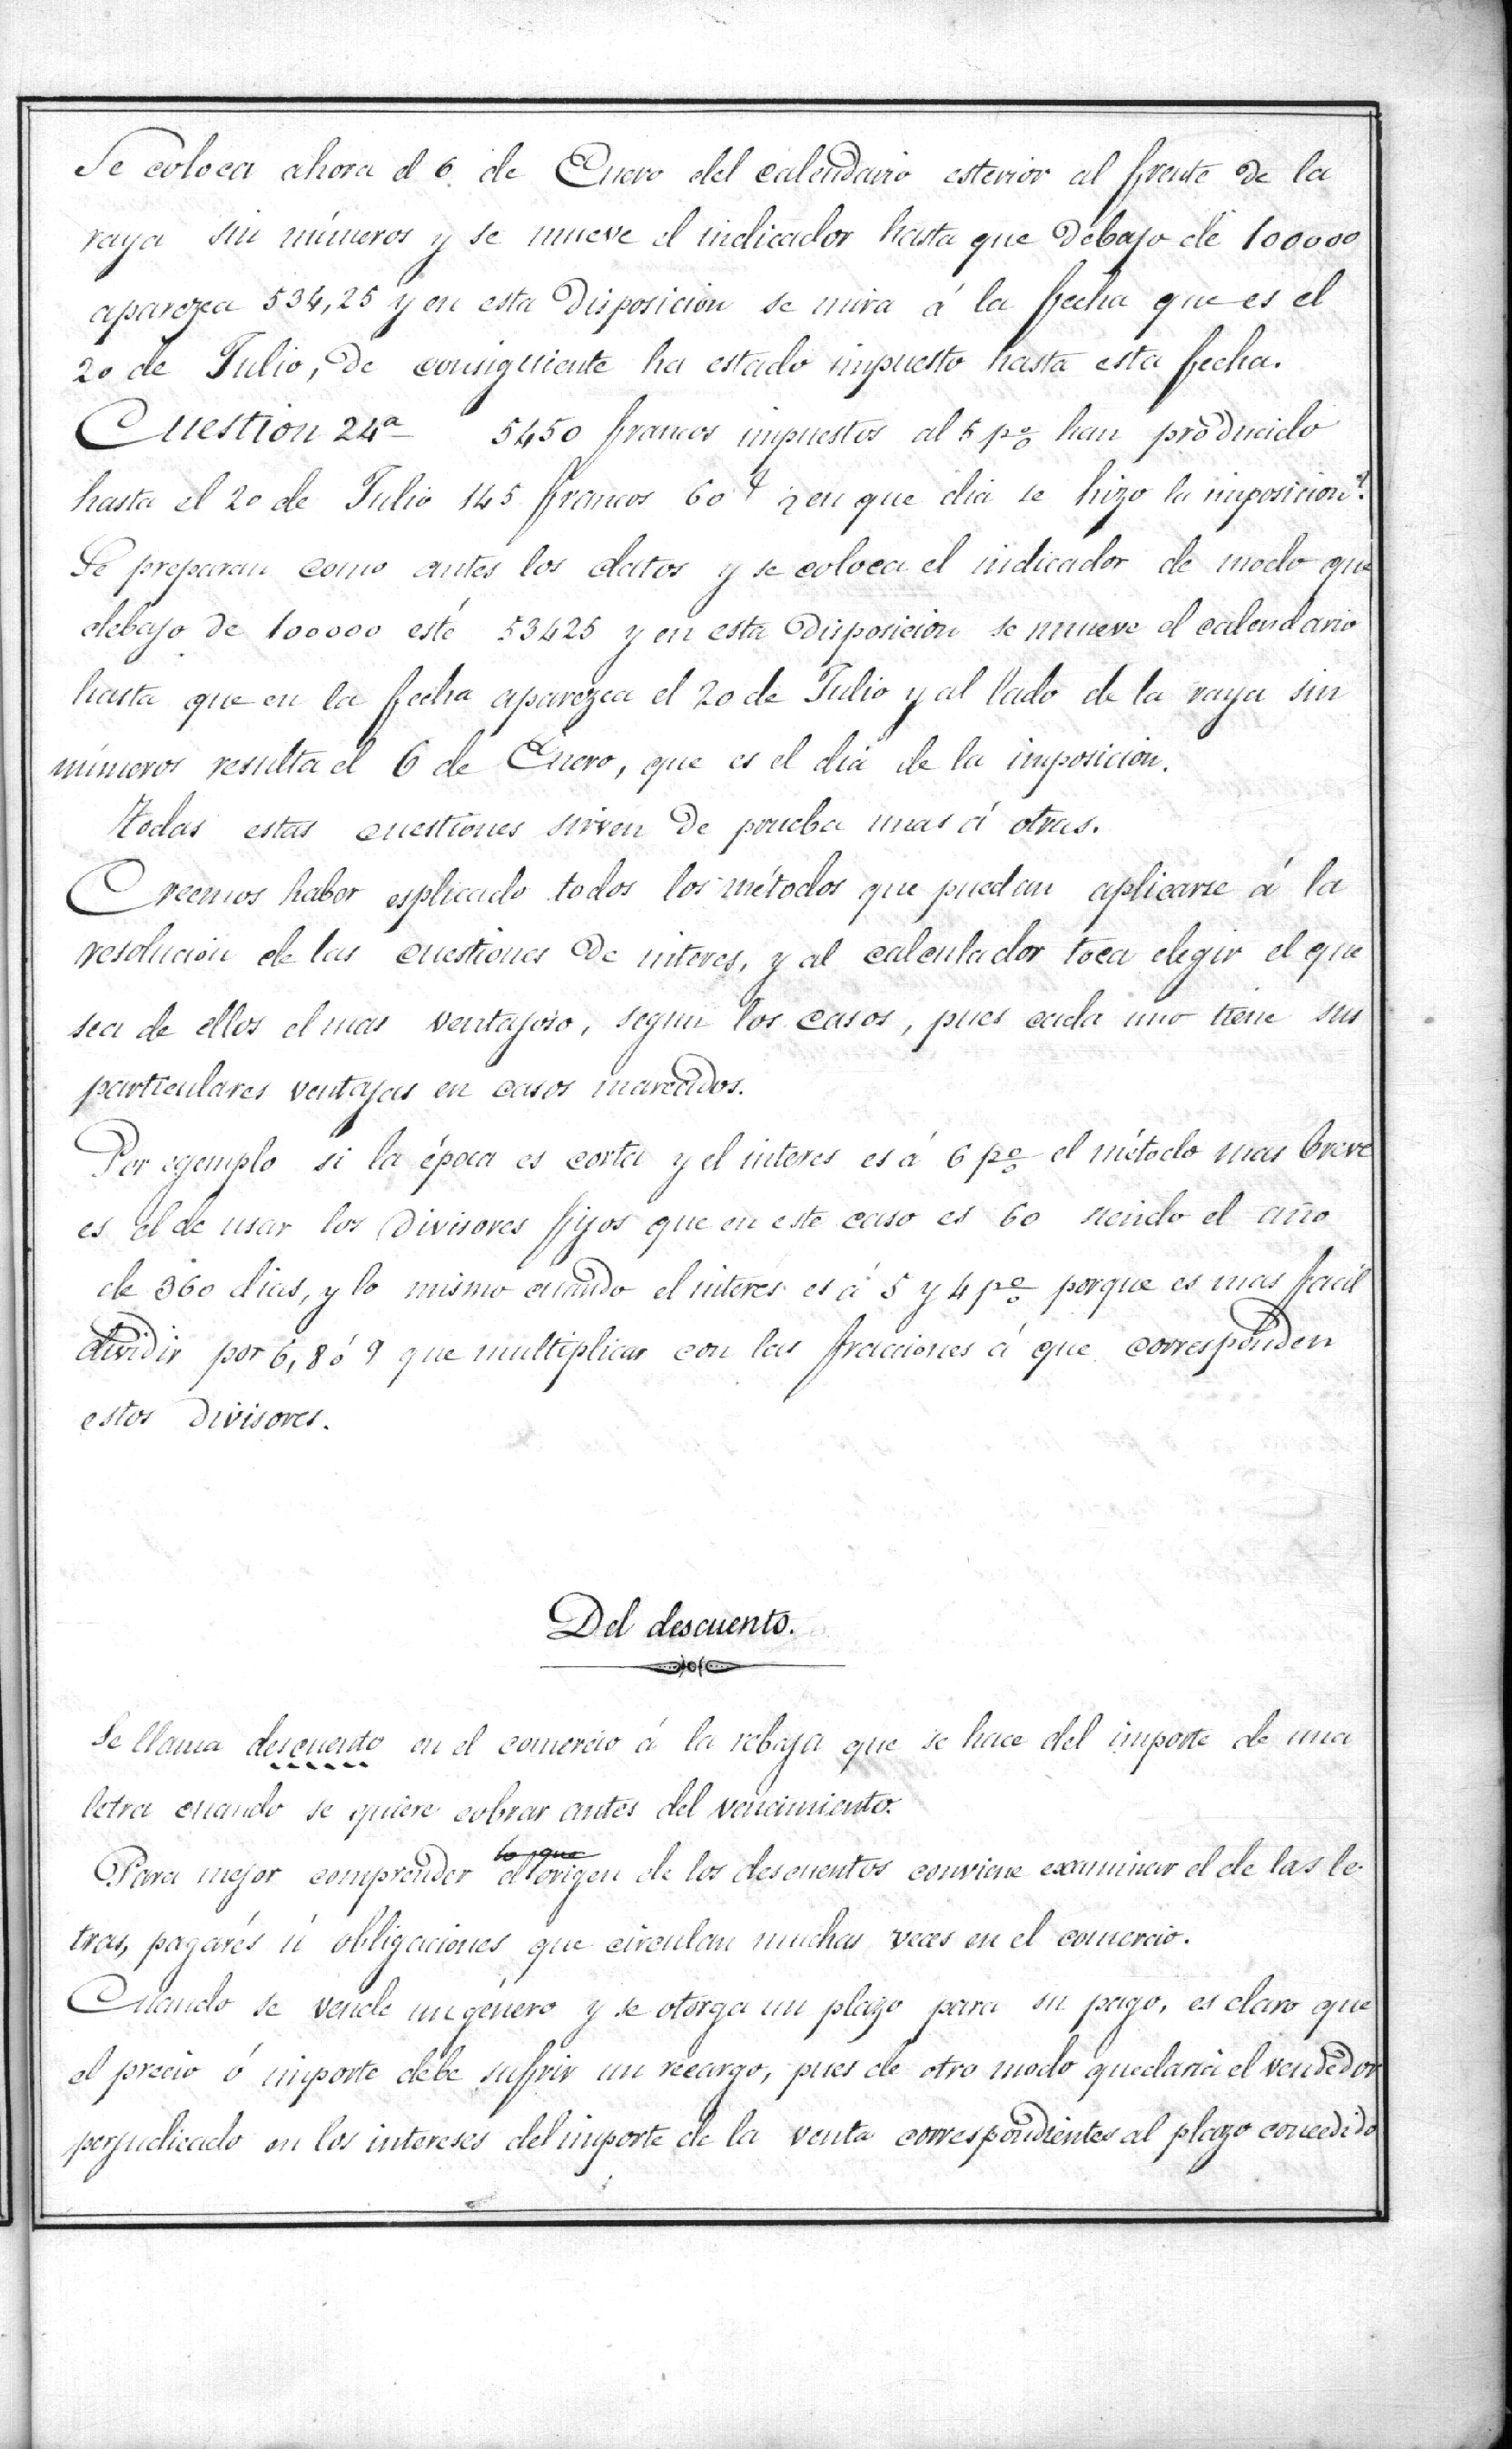 Se coloca ahora el 6 de Enero del calendario esterior al frente de la
raya sin números y se mueve el indicador hasta que debajo de 100000
aparezca 534,25 y en esta disposicion se mira á la fecha que es el
20 de Julio, de consiguiente ha estado impuesto hasta esta fecha.
Cuestion 24ª 5450 francos impuestos al 5 p% han producido
hasta el 20 de Julio 145 francos 60 ¿en que dia se hizo la imposicion?
Se preparan como antes los datos y se coloca el indicador de modo que
debajo de 100000 esté 53425 y en esta disposicion se mueve el calendario
hasta que en la fecha aparezca el 20 de Julio y al lado de la raya sin
números resulta el 6 de Enero, que es el dia de la imposicion.
Todas estas cuestiones sirven de prueba unas á otras.
Creemos haber esplicado todos los métodos que puedan aplicarse á la
resolucion de las cuestiones de interes, y al calculador toca elegir el que
sea de ellos el mas ventajoso, segun los casos, pues cada uno tiene sus
particulares ventajas en casos marcados.
Por egemplo si la época es corta y el interes es á 6 p% el método mas breve
es el de usar los divisores fijos que en este caso es 60 siendo el año
de 360 dias, y lo mismo cuando el interes es á 5 y 4 p% porque es mas facil
dividir por 6, 8 ó 9 que multiplicar con las fracciones á que corresponden
estos divisores.
Del descuento.
Se llama descuento en el comercio á la rebaja que se hace del importe de una
letra cuando se quiere cobrar antes del vencimiento.
lo que
Para mejor comprender el origen de los descuentos conviene examinar el de las le-
tras, pagarés ú obligaciones que circulan muchas veces en el comercio.
Cuando se vende un género y se otorga un plazo para su pago, es claro que
el precio ó importe debe sufrir un recargo, pues de otro modo quedaria el vendedor
perjudicado en los intereses del importe de la venta correspondientes al plazo concedido